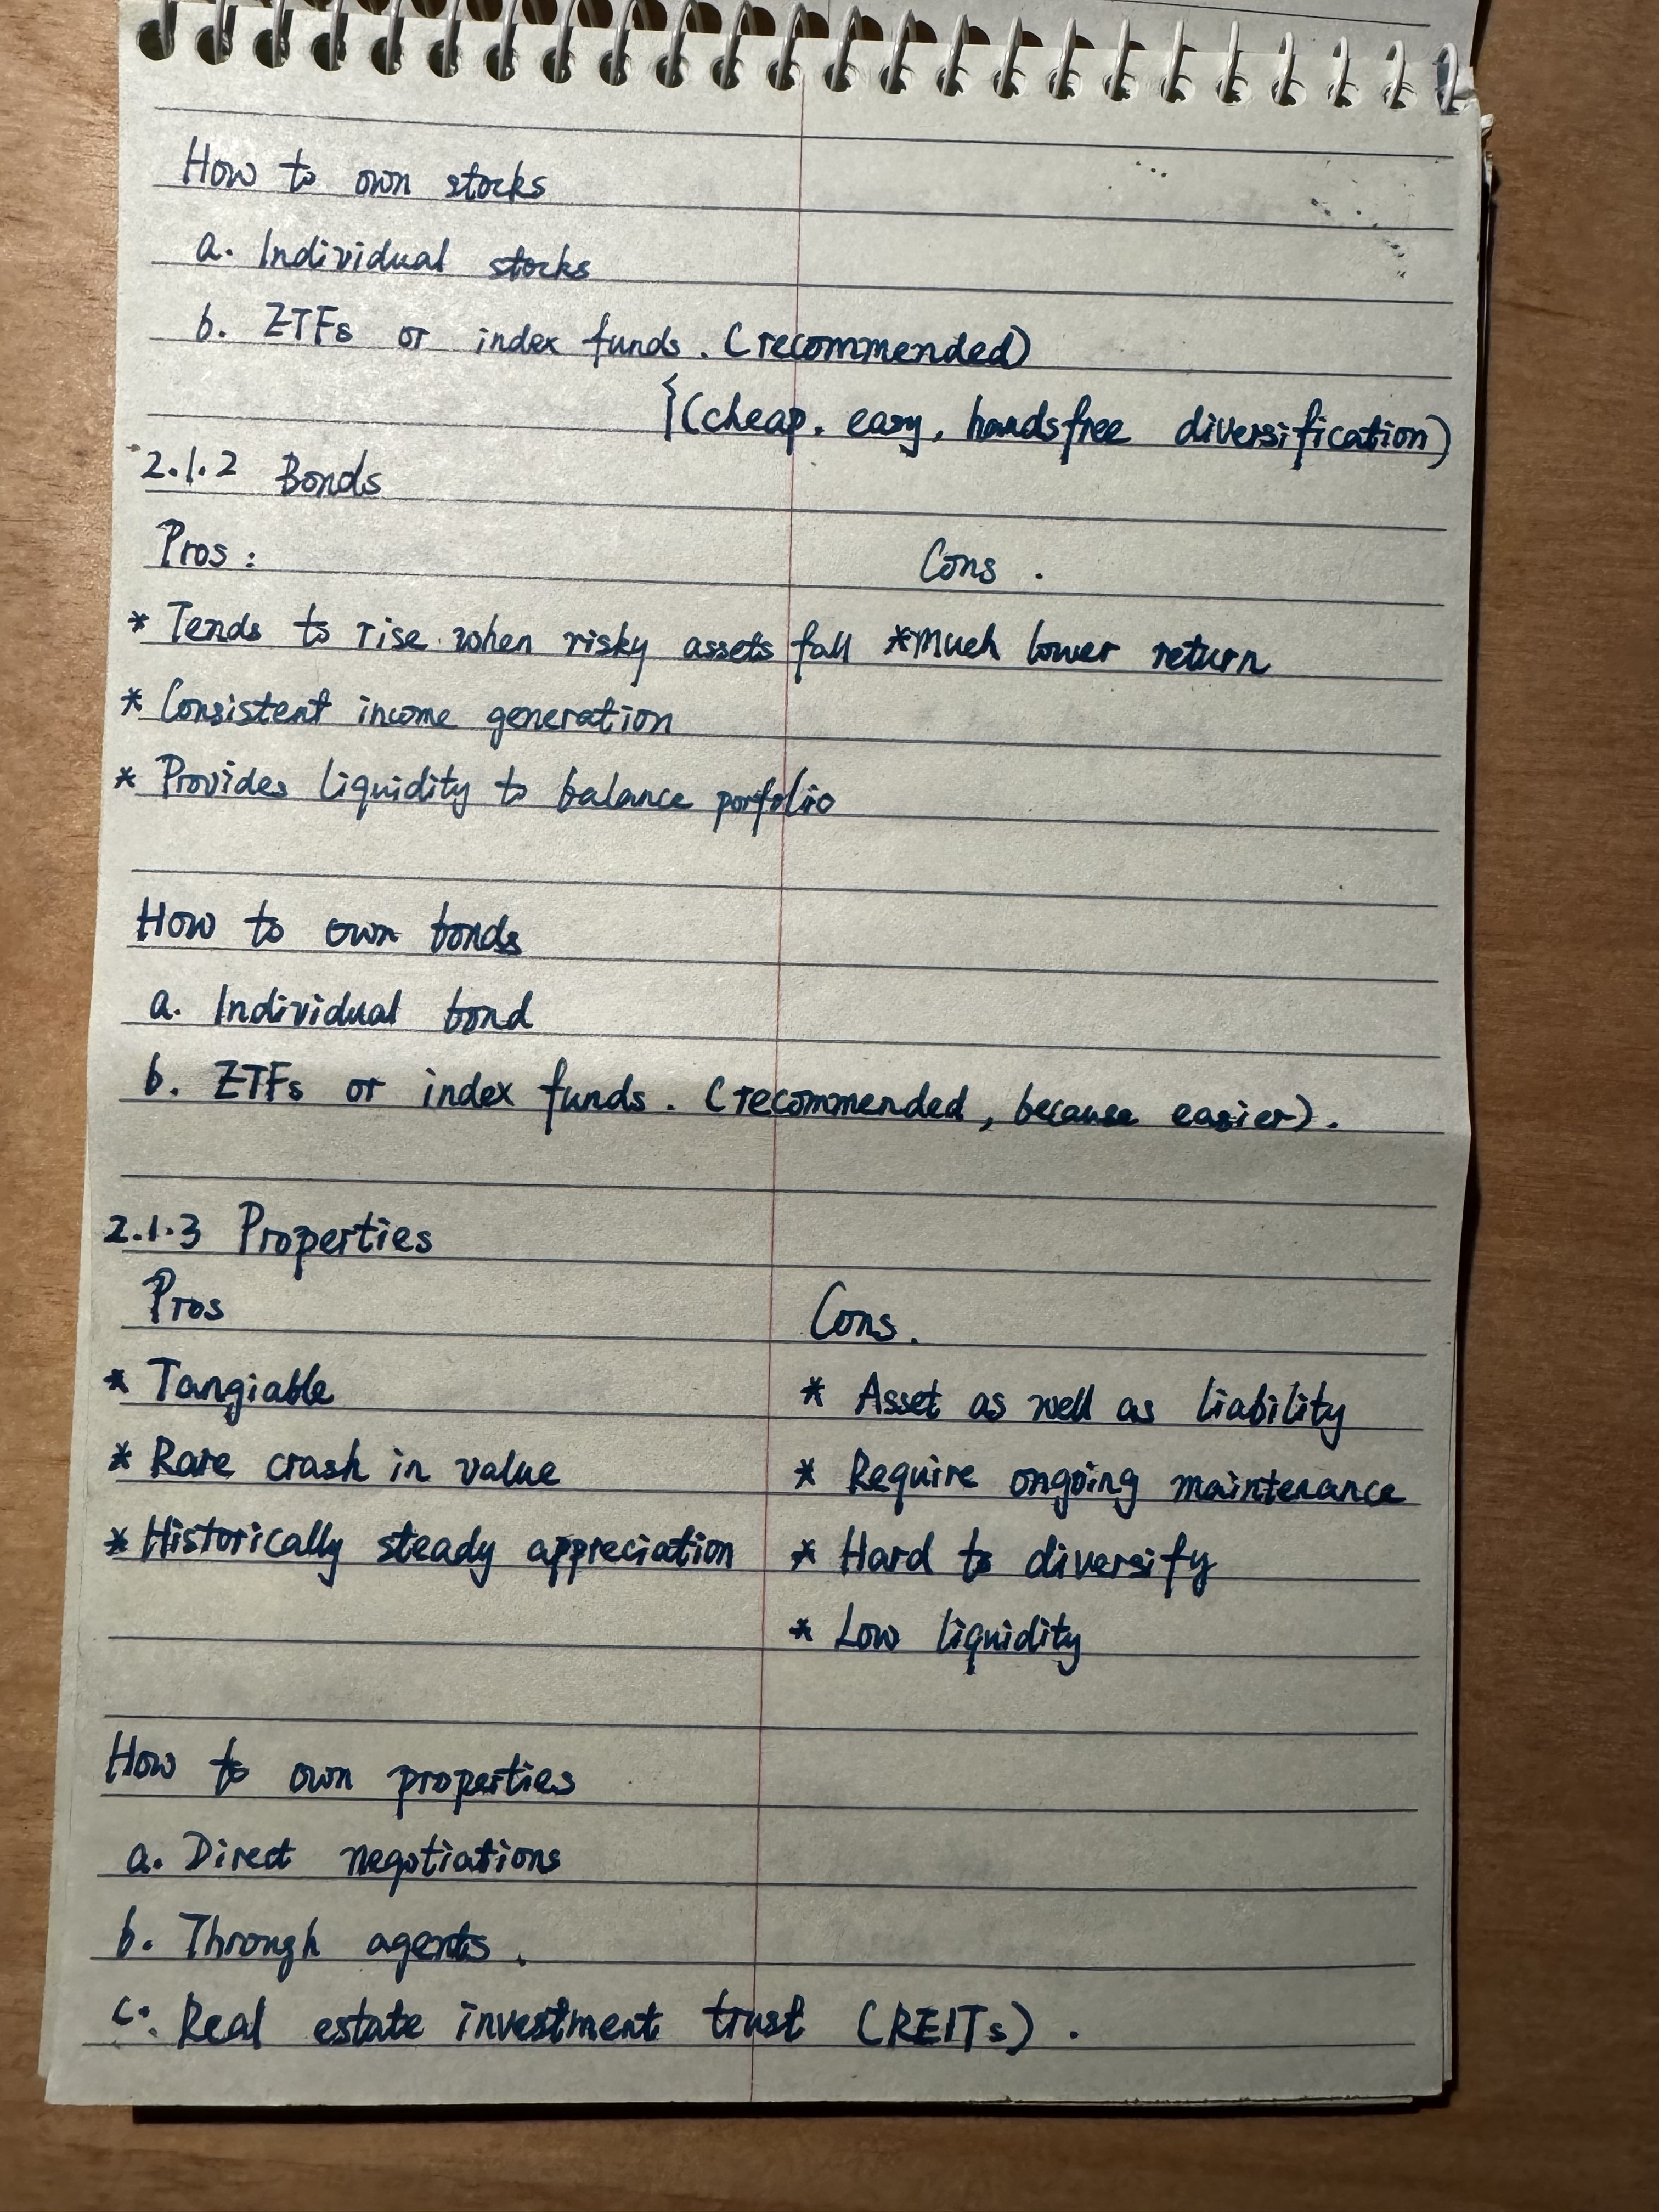 How to own stocks
a. Individual stocks
b. ETFs or index funds. (recommended)
{(cheap, easy, handsfree diversification)
2.1.2 Bonds
Pros: Cons.
* Tends to rise when risky assets fall *Much lower return
* Consistent income generation
* Provides liquidity to balance porfolio
How to own bonds
a. Individual bond
b. ETFs or index funds. (recommended, because easier).
2.1.3 Properties
Pros Cons.
* Tangiable * Asset as well as liability
* Rare crash in value * Require ongoing maintenance
* Historically steady appreciation * Hard to diversify
* Low liquidity
How to own properties
a. Direct negotiations
b. Through agents.
c. Real estate investment trust (REITs).